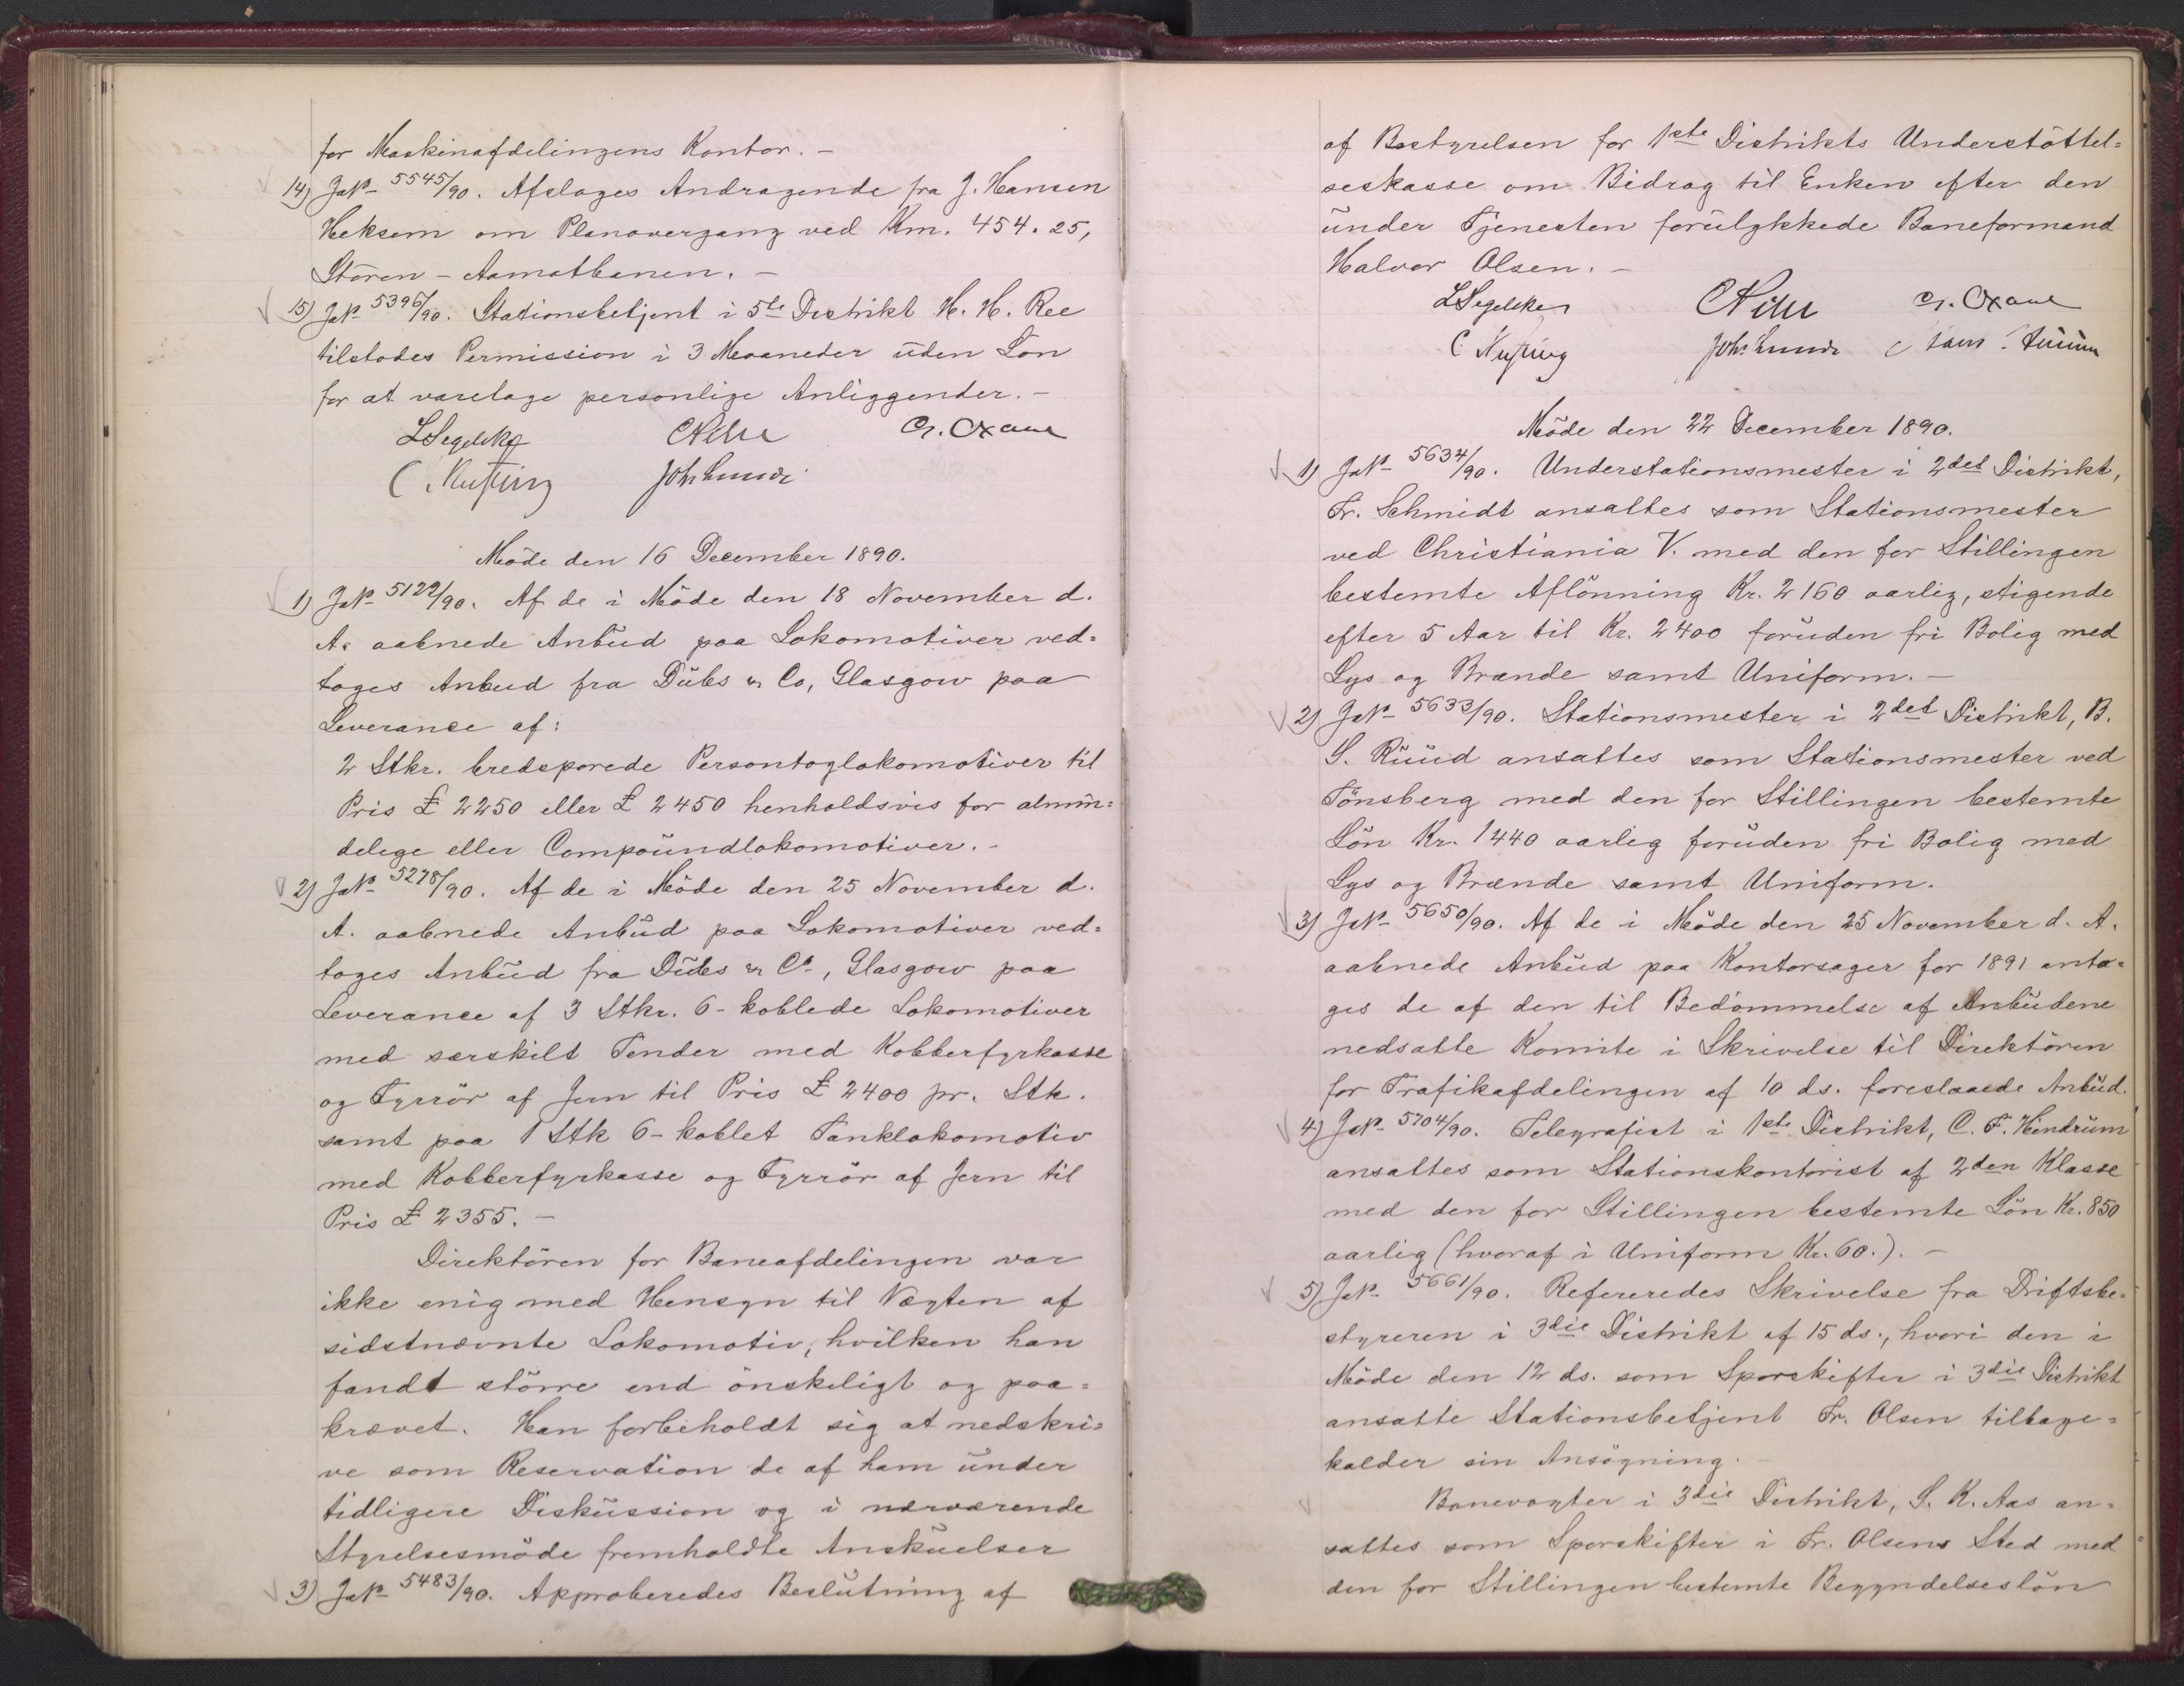 for Maskinafdelingens Kontor. –
14) JNo 5545/90. Afsloges Andragende fra J. Hansen
Heksem om Planovergang ved Km. 454.25,
Stören – Aamotbanen. –
15) JNo 5396/90. Stationsbetjent i 5te Distrikt H. H. Ree
tilstodes Permission i 3 Maaneder uden Lön
for at varetage personlige Anliggender. –
LSegelcke
Joh. Lunde
Möde den 16 December 1890.
1) JNo 5122/90. Af de i Möde den 18 November d.
A. aabnede Anbud paa Lokomotiver ved=
toges Anbud fra Dübs & Co, Glasgow paa
Leverance af:
2 Stkr. bredsporede Persontoglokomotiver til
Pris £ 2250 eller £ 2450 henholdsvis for almin=
delige eller Compoundlokomotiver. –
2) JNo 5278/90. Af de i Möde den 25 November d.
A. aabnede Anbud paa Lokomotiver ved=
toges Anbud fra Dübs & Co, Glasgow paa
Leverance af 3 Stkr. 6-koblede Lokomotiver
med særskilt Tender med Kobberfyrkasse
og Fyrrör af Jern til Pris £ 2400 pr. Stk.
samt paa 1 Stk 6-koblet Tanklokomotiv
med Kobberfyrkasse og Fyrrör af Jern til
Pris £ 2355. –
Direktören for Baneafdelingen var
ikke enig med Hensyn til Vægten af
sidstnævnte Lokomotiv, hvilken han
fandt större end önskeligt og paa=
krævet. Han forbeholdt sig at nedskri=
ve som Reservation de af ham under
tidligere Diskussion og i nærværende
Styrelsesmöde fremholdte Anskuelser
3) JNo 5483/90. Approberedes Beslutning af
af Bestyrelsen for 1ste Distrikts Understöttel=
seskasse om Bidrag til Enken efter den
under Tjenesten forulykkede Baneformand
Halvor Olsen. –
LSegelcke
Joh. Lunde
Möde den 22 December 1890.
1) JNo 5634/90. Understationsmester i 2det Distrikt,
Fr. Schmidt ansattes som Stationsmester
ved Christiania V. med den for Stillingen
bestemte Aflönning Kr. 2160 aarlig, stigende
efter 5 Aar til Kr. 2400 foruden fri Bolig med
Lys og Brænde samt Uniform. –
2) JNo 5633/90. Stationsmester i 2det Distrikt, B.
S. Ruud ansattes som Stationsmester ved
Tönsberg med den for Stillingen bestemte
Lön Kr. 1440 aarlig foruden fri Bolig med
Lys og Brænde samt Uniform.
3) JNo 5650/90. Af de i Möde den 25 November d. A.
aabnede Anbud paa Kontorsager for 1891 anto=
ges de af den til Bedömmelse af Anbudene
nedsatte Komite i Skrivelse til Direktören
for Trafikafdelingen af 10 ds. foreslaaede Anbud.
4) JNo 5704/90. Telegrafist i 1ste Distrikt, C. F. Hindrum
ansattes som Stationskontorist af 2den Klasse
med den for Stillingen bestemte Lön Kr. 850
aarlig (hvoraf i Uniform Kr. 60.). –
5) JNo 5661/90. Refereredes Skrivelse fra Driftsbe=
styreren i 3die Distrikt af 15 ds., hvori den i
Möde den 12 ds. som Sporskifter i 3die Distrikt
ansatte Stationsbetjent Fr. Olsen tilbage=
kalder sin Ansögning.
Banevogter i 3die Distrikt, S. K. Aas an=
sattes som Sporskifter i Fr. Olsens Sted med
den for Stillingen bestemte Begyndelseslön